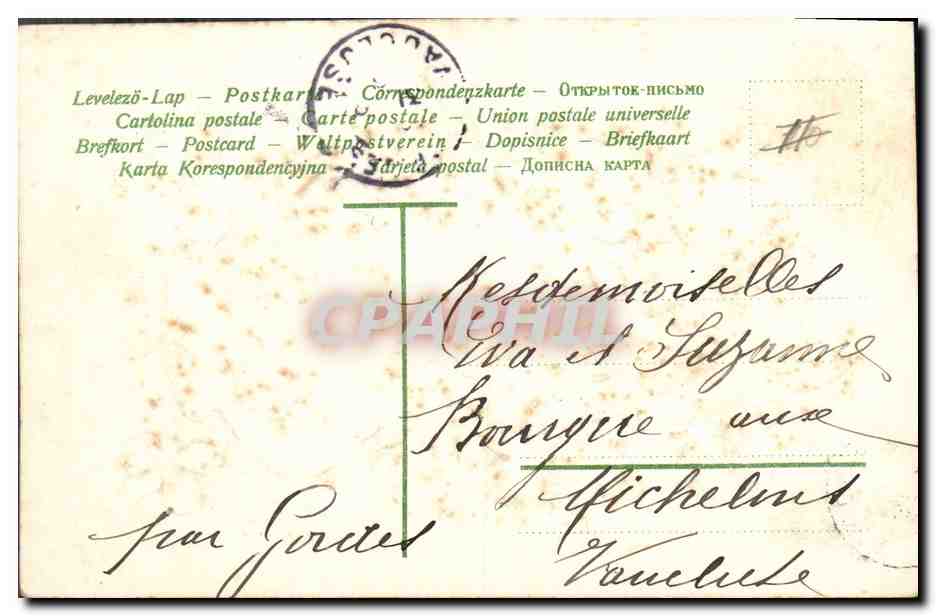 Levelező-Lap — Postkarte — Correspondenzkarte — Открыток-письмо
Cartolina postale — Carte postale — Union postale universelle
Brefkort — Postcard — Weltpostverein — Dopisnice — Briefkaart
Karta Korespondencyjna — Tarjeta postal — Дописна карта
VAUCLUSE
CPAPHIL
Mesdemoiselles
Eva et Suzanne
Bourgue aux
Michelons
par Gordes
Vaucluse